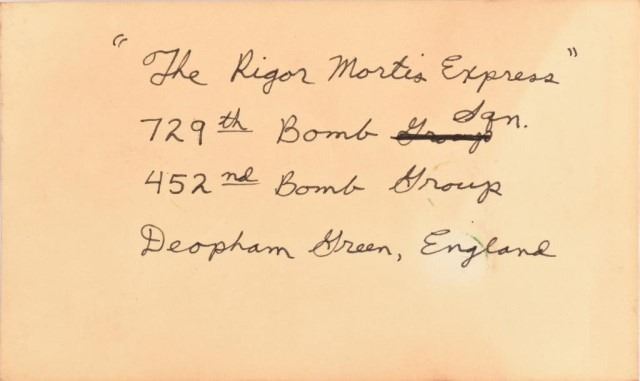 "The Rigor Mortis Express"
729th Bomb Group Sqn.
452nd Bomb Group
Deopham Green, England